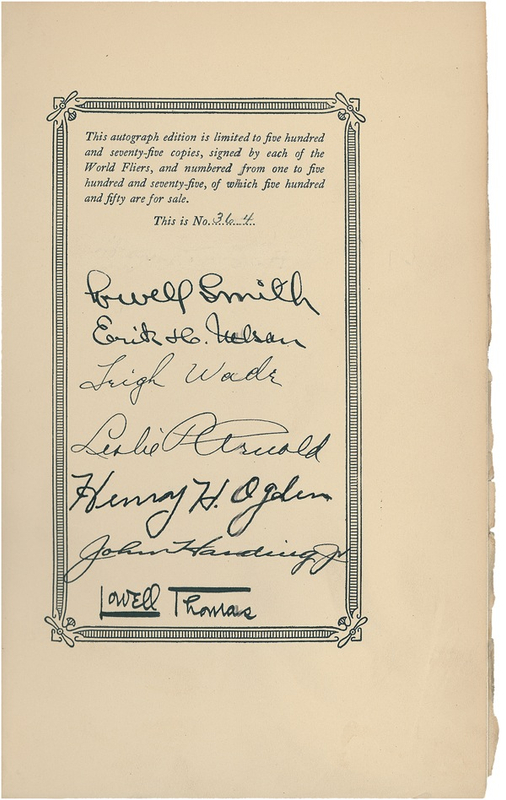 This autograph edition is limited to five hundred
and seventy-five copies, signed by each of the
World Fliers, and numbered from one to five
hundred and seventy-five, of which five hundred
and fifty are for sale.
This is No. 364.
Lowell Smith
Erik H. Nelson
Leigh Wade
Leslie P. Arnold
Henry H. Ogden
John Harding Jr
Lowell Thomas